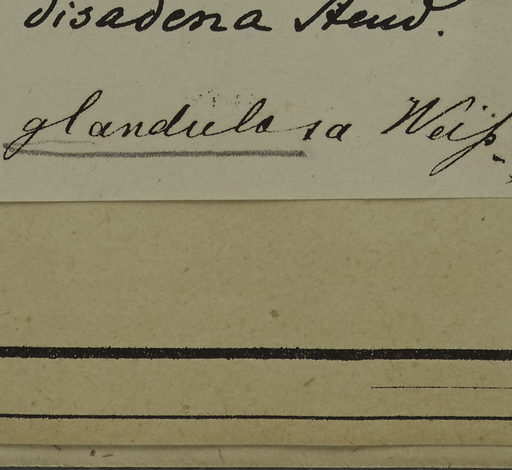 disadena Steud.
glandulosa Weiß.